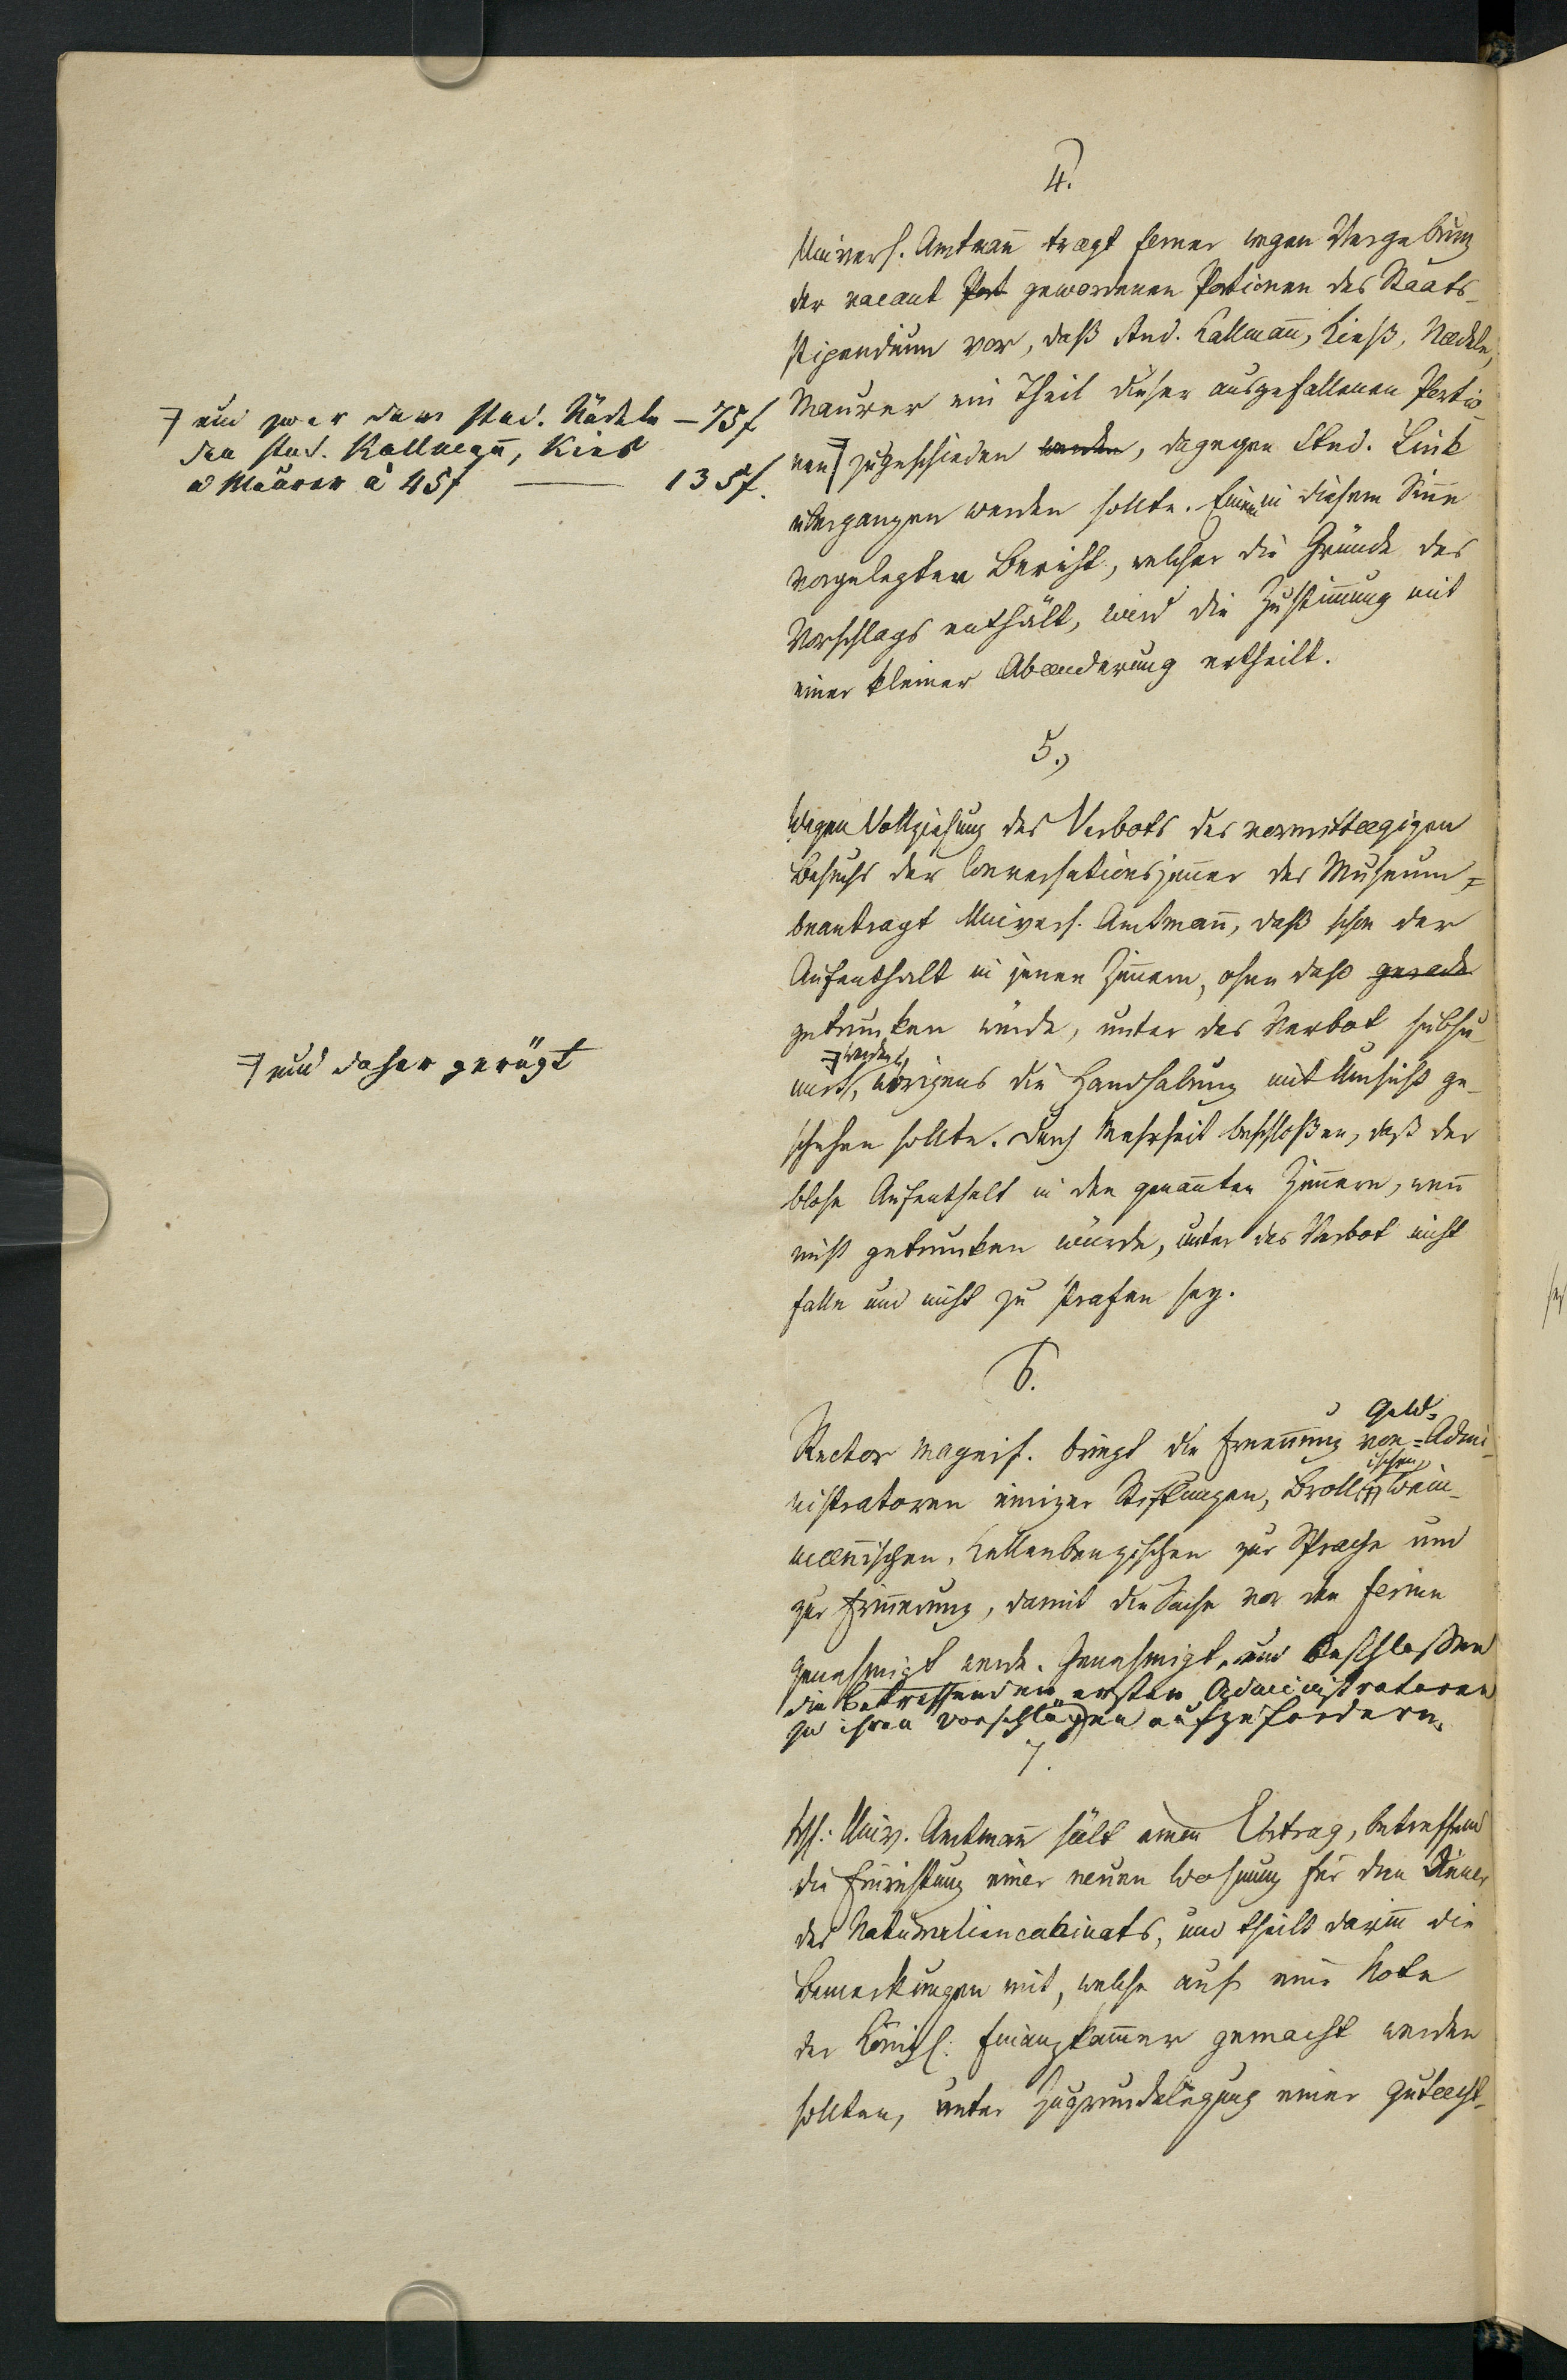 4.
Univers. Amtmañ trægt ferner wegen Vergebung
der vacant Port gewordenen Portionen des Staats-
stipendium vor, daß stud. Kallmañ, Kieß, Nædele,
Maurer ein Theil dieser ausgefallenen Portio-
nen zugeschieden werden, dagegen Stud. Link
übergangen werden sollte. Einem in diesem Siñe
vorgelegten Bericht, welcher die Gründe des
Vorschlags enthält, wird die Zustim̃ung mit
einer kleiner Abænderung ertheilt.
und zwar dem stud. Nädele – 75 f
den stud. Kallmañ, Kies
u Maurer à 45 f — 135 f.
5.,
Wegen Vollziehung des Verbots des vormittægigen
Besuchs der Conversationszim̃er des Museum,
beantragt Univers. Amtmañ, daß schon der
Aufenthalt in jenen Zim̃ern, ohne daß gerade
getrunken würde, unter das Verbot subsu-
mirt, werden, übrigens die Handhabung mit Umsicht ge-
schehen sollte. Durch Mehrheit beschloßen, daß der
blose Aufenthalt in den genañten Zim̃ern, weñ
nicht getrunken würde, unter das Verbot nicht
falle und nicht zu strafen sey.
und daher gerügt
6.
Rector magnif. bringt die Ernen̄ung von Geld-Admi-
nistratoren einiger Stiftungen, Brollischen, Wein-
mæñischen, Kellenbenzischen zur Sprache und
zur Eriñerung, damit die Sache vor den Ferien
genehmigt werde. Genehmigt, und beschloßen
die betreffenden ersten Administratoren
zu ihren Vorschlägen aufzufordern.
7.
Univ. Amtmañ hält einen Vortrag, betreffend
die Einrichtung einer neuen Wohnung für den Diener
des Naturaliencabinats, und theilt dariñ die
Bemerkungen mit, welche auf eine Note
der Königl. Finanzkam̃er gemacht werden
sollten, unter Zugrundelegung einer gutacht-